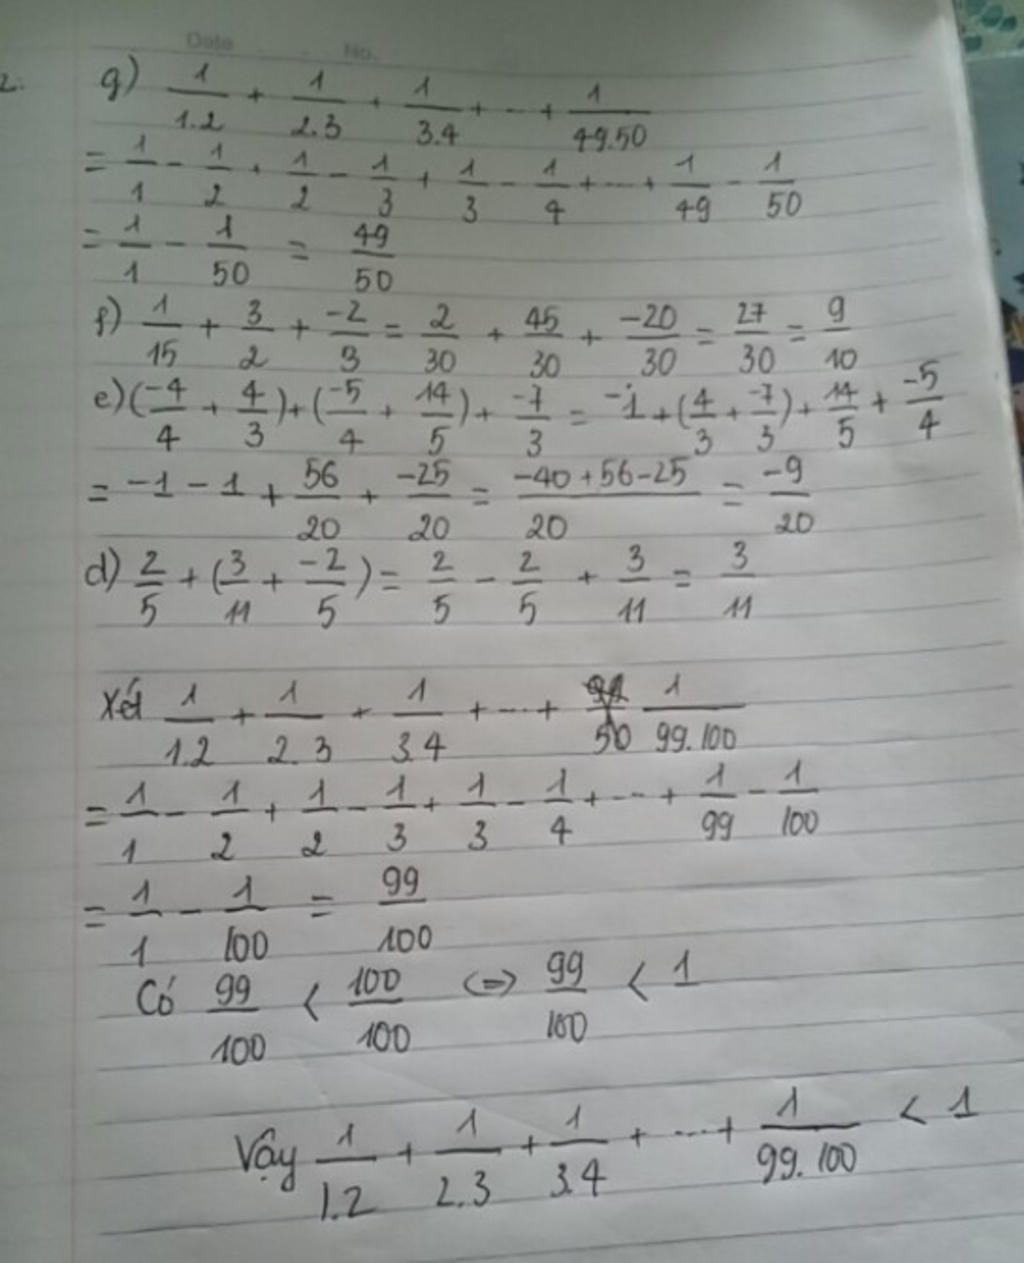 Date No.
2. g) 1/1.2 + 1/2.3 + 1/3.4 + ... + 1/49.50
= 1/1 - 1/2 + 1/2 - 1/3 + 1/3 - 1/4 + ... + 1/49 - 1/50
= 1/1 - 1/50 = 49/50
f) 1/15 + 3/2 + -2/3 = 2/30 + 45/30 + -20/30 = 27/30 = 9/10
e) (-4/4 + 4/3) + (-5/4 + 14/5) + -7/3 = -1 + (4/3 + -7/3) + 14/5 + -5/4
= -1 - 1 + 56/20 + -25/20 = -40 + 56 - 25/20 = -9/20
d) 2/5 + (3/11 + -2/5) = 2/5 - 2/5 + 3/11 = 3/11
Xét 1/1.2 + 1/2.3 + 1/3.4 + ... + 1/99.100
= 1/1 - 1/2 + 1/2 - 1/3 + 1/3 - 1/4 + ... + 1/99 - 1/100
= 1/1 - 1/100 = 99/100
Có 99/100 < 100/100 <=> 99/100 < 1
Vậy 1/1.2 + 1/2.3 + 1/3.4 + ... + 1/99.100 < 1